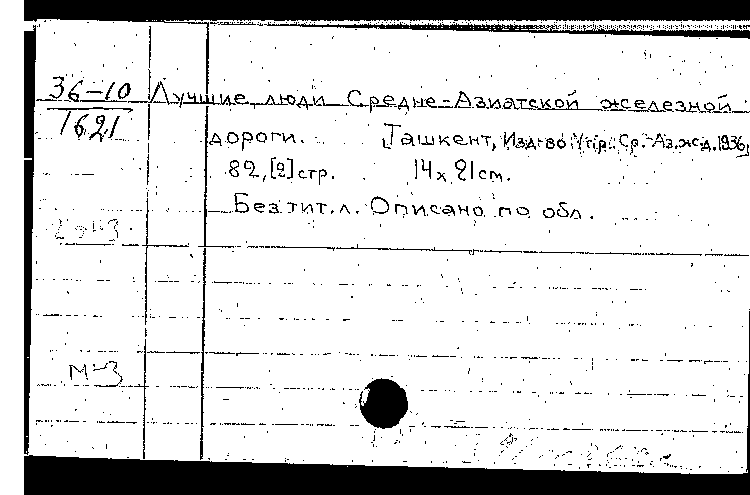 36-10 Лучшие люди Средне-Азиатской железной
1621
дороги. Ташкент, Изд-во Упр. Ср.-Аз.ж.д. 1936,
82,[2]стр. 14 x 21см.
Без тит.л. Описано по обл.
М-3